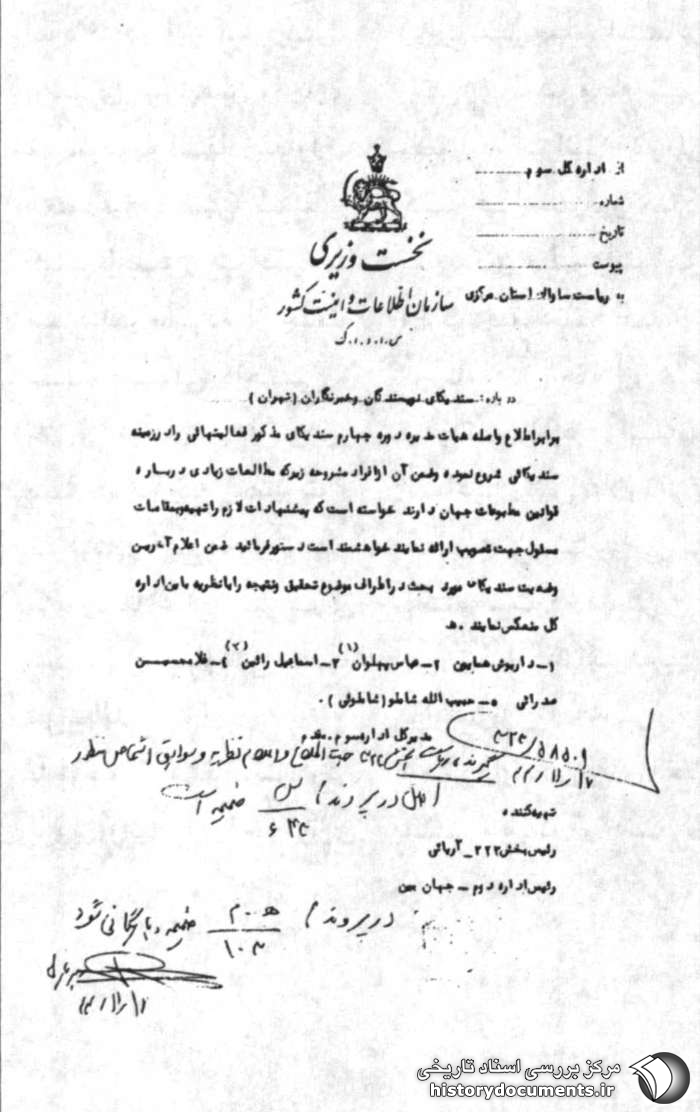 از اداره کل سوم
شماره
تاریخ
پیوست
به ریاست ساواک استان مرکزی
نخست وزیری
سازمان اطلاعات و امنیت کشور
س.ا.و.ا.ک
درباره: سندیکای نویسندگان و خبرنگاران (تهران)
برابر اطلاع واصله هیات مدیره دوره چهارم سندیکای مذکور فعالیتهائی را در زمینه
سندیکائی شروع نموده و ضمن آن از افراد مشروحه زیر که مطالعات زیادی درباره
قوانین مطبوعات جهان دارند خواسته است که پیشنهادات لازم را تهیه و بمقامات
مسئول جهت تصویب ارائه نمایند خواهشمند است دستور فرمائید ضمن اعلام آخرین
وضعیت سندیکای مورد بحث در اطراف موضوع تحقیق و نتیجه را با نظریه باین اداره
کل منعکس نمایند. ه
۱- داریوش همایون ۲- عباس پهلوان (۱) ۳- اسماعیل رائین (۲) ۴- غلامحسین
صدرائی ۵- حبیب الله شاملو (شاملوئی).
مدیرکل اداره سوم. مقدم
جهت اطلاع و اعلام نظریه و سوابق اشخاص منظور
اصل در پرونده
ضمیمه است
تهیه کننده
رئیس بخش ۲۲۲- آریائی
رئیس اداره دوم - جهان بین
در پرونده
ضمیمه و بایگانی شود
مرکز بررسی اسناد تاریخی
historydocuments.ir